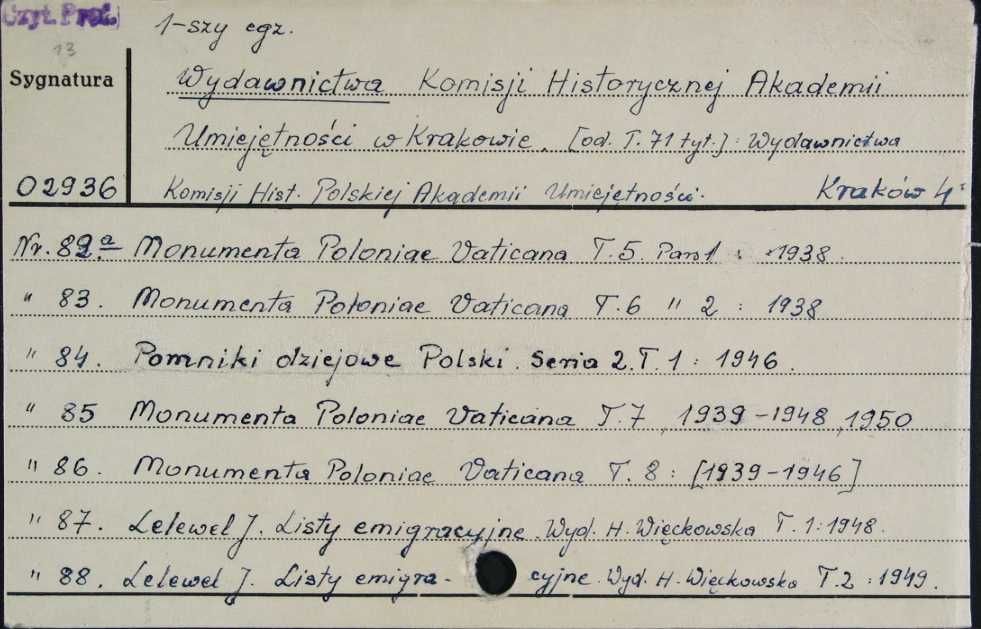 Czyt. Prof.
1-szy egz.
13
Sygnatura
Wydawnictwa Komisji Historycznej Akademii
Umiejętności w Krakowie. [od. T. 71 tyt.]: Wydawnictwa
02936
Komisji Hist. Polskiej Akademii Umiejętności. Kraków 4°
Nr. 82.a Monumenta Poloniae Vaticana T. 5. Pars 1 : 1938.
" 83. Monumenta Poloniae Vaticana T. 6 " 2 : 1938
" 84. Pomniki dziejowe Polski. Seria 2. T. 1 : 1946.
" 85 Monumenta Poloniae Vaticana T. 7 1939-1948, 1950
" 86. Monumenta Poloniae Vaticana T. 8 : [1939-1946]
" 87. Lelewel J. Listy emigracyjne. Wyd. H. Więckowska T. 1 : 1948.
" 88. Lelewel J. Listy emigra- cyjne. Wyd. H. Więckowska T. 2 : 1949.